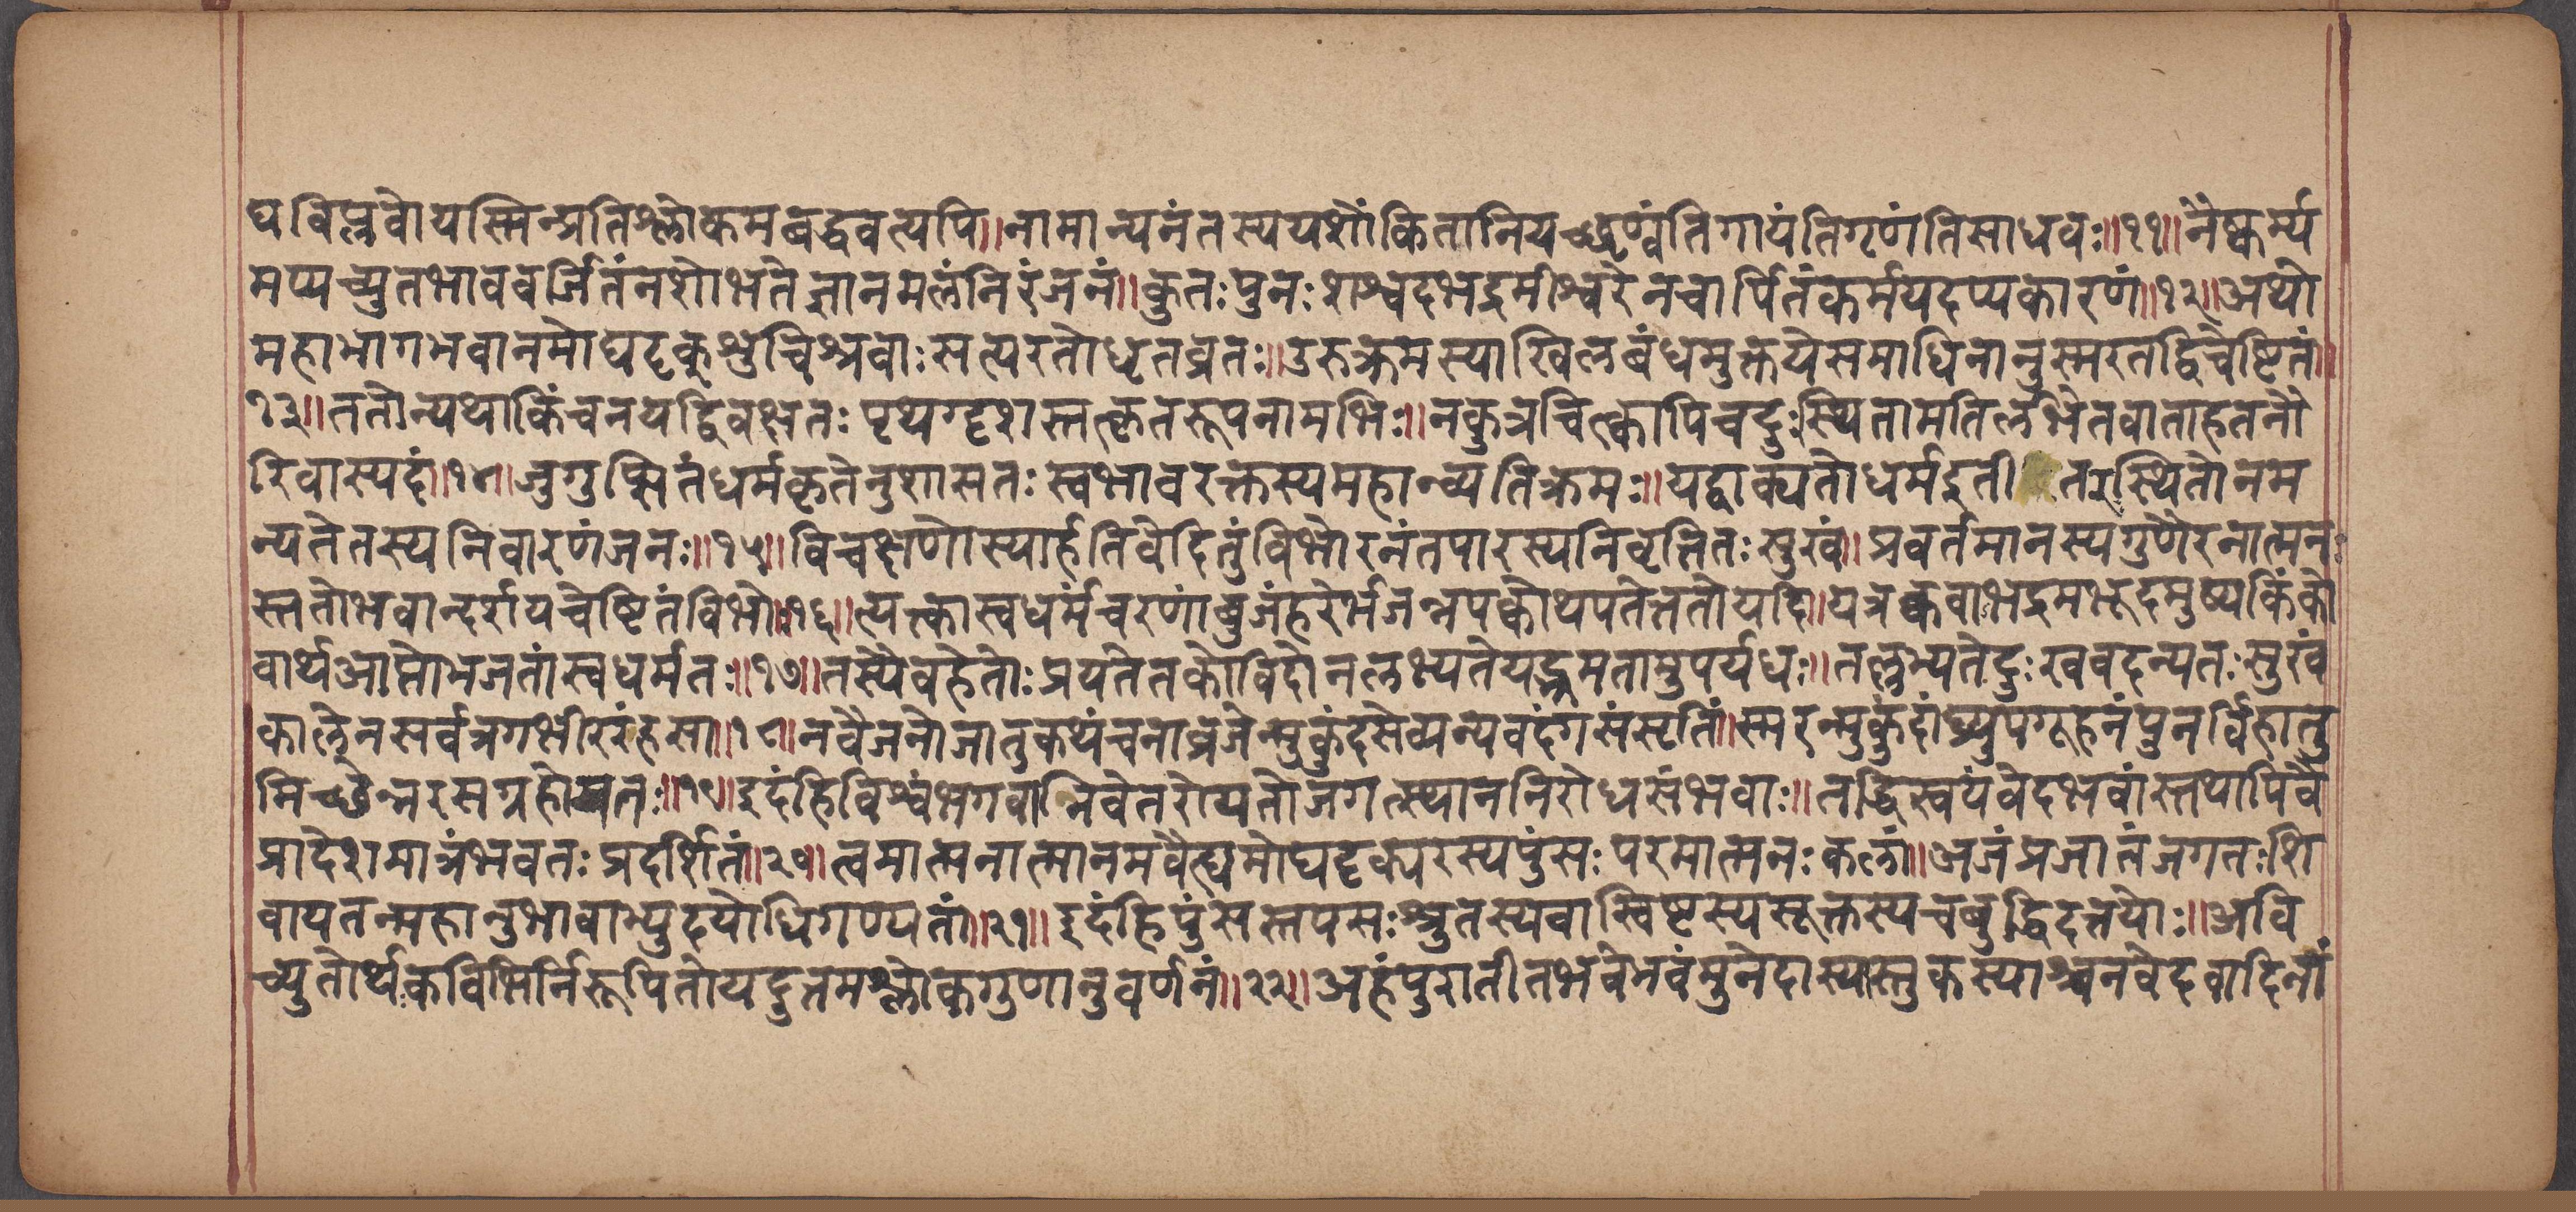 घविप्लवोयस्मिन्प्रतिश्लोकमबद्धवत्यपि॥नामान्यनंतस्ययशोंकितानियच्छृण्वंतिगायंतिगृणंतिसाधवः॥११॥नैष्कर्म्य
मप्यच्युतभाववर्जितंनशोभतेज्ञानमलंनिरंजनं॥कुतःपुनःशश्वदभद्रमीश्वरेनचार्पितंकर्मयदप्यकारणं॥१२॥अथो
महाभागभवानमोघदृक्शुचिश्रवाःसत्यरतोधृतव्रतः॥उरुक्रमस्याखिलबंधमुक्तयेसमाधिनानुस्मरतद्विचेष्टितं॥
१३॥ततोन्यथाकिंचनयद्विवक्षतःपृथग्दृशस्तत्कृतरूपनामभिः॥नकुत्रचित्क्वापिचदुःस्थितामतिर्लभेतवाताहतनौ
रिवास्पदं॥१४॥जुगुप्सितंधर्मकृतेनुशासतःस्वभावरक्तस्यमहान्व्यतिक्रमः॥यद्वाक्यतोधर्मइतीतरस्थितोनम
न्यतेतस्यनिवारणंजनः॥१५॥विचक्षणोस्यार्हतिवेदितुंविभोरनंतपारस्यनिवृत्तितःसुखं॥प्रवर्तमानस्यगुणैरनात्मनः
स्ततोभवान्दर्शयचेष्टितंविभोः॥१६॥त्यक्त्कास्वधर्मंचरणांबुजंहरेर्भजन्नपक्वोथपतेत्ततोयदि॥यत्रक्कवाभद्रमभूदमुष्यकिंको
वार्थआप्तोभजतांस्वधर्मतः॥१७॥तस्यैवहेतोःप्रयतेतकोविदोनलभ्यतेयद्भ्रमतामुपर्यधः॥तल्लभ्यतेदुःखवदन्यतःसुखं
कालेनसर्वत्रगभीररंहसा॥१८॥नवैजनोजातुकथंचनाव्रजेन्मुकुंदसेव्यन्यवदंगसंसृतिं॥स्मरन्मुकुंदांघ्र्युपगूहनंपुनर्विहातु
मिच्छेन्नरसग्रहोयतः॥१९॥इदंहिविश्वंभगवानिवेतरोयतोजगत्स्थाननिरोधसंभवाः॥तद्धिस्वयंवेदभवांस्तथापिवै
प्रादेशमात्रंभवतःप्रदर्शितं॥२०॥त्वमात्मनात्मानमवैह्यमोघदृक्परस्यपुंसःपरमात्मनःकलां॥अजंप्रजातंजगतःशि
वायतन्महानुभावाभ्युदयोधिगण्यतां॥२१॥इदंहिपुंसस्तपसःश्रुतस्यवास्विष्टस्यसूक्तस्यचबुद्धिदत्तयोः॥अवि
च्युतोर्थःकविभिर्निरूपितोयदुत्तमश्लोकगुणानुवर्णनं॥२२॥अहंपुरातीतभवेभवंमुनेदास्यास्तुकस्याश्चनवेदवादिनां